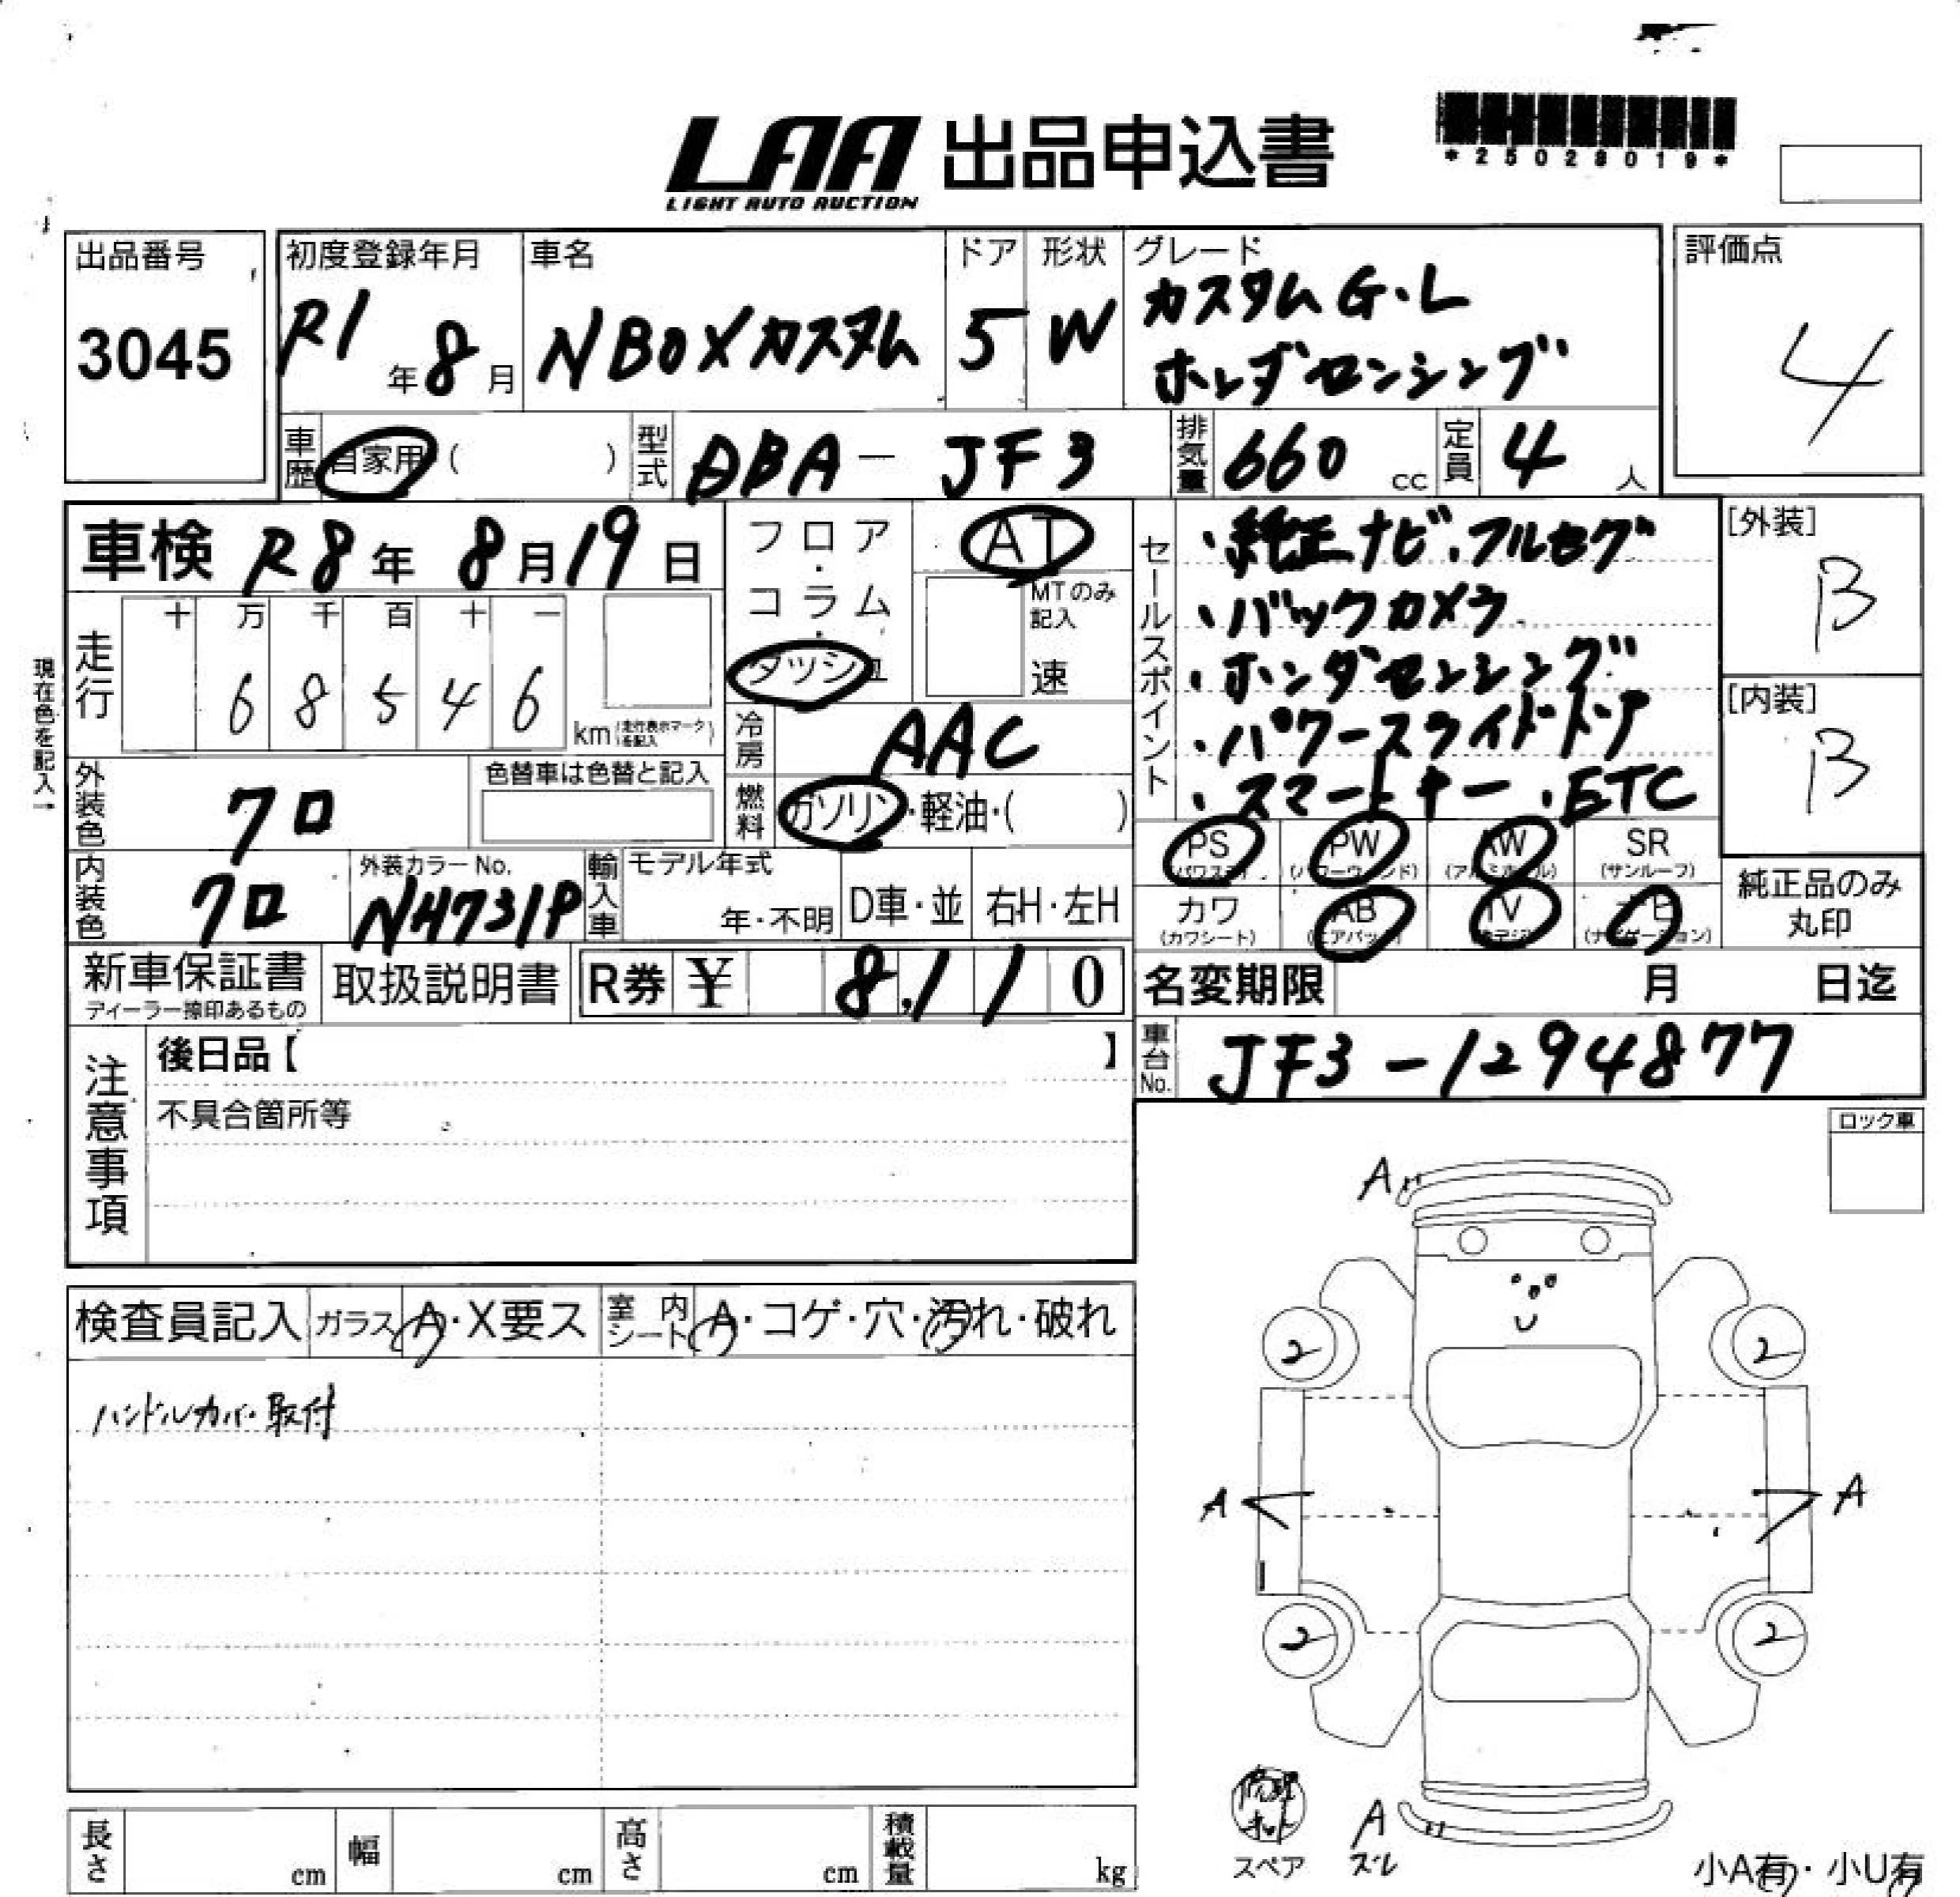 LAA 出品申込書
LIGHT AUTO AUCTION
*25028019*
出品番号
3045
初度登録年月
R1年8月
車名
NBOXカスタム
ドア
5
形状
W
グレード
カスタムG・L
ホンダセンシング
評価点
4
車歴 自家用 ( )
型式 DBA-JF3
排気量 660 cc
定員 4 人
車検 R8年8月19日
フロア・コラム・ダッシュ
AT
MTのみ記入
速
走行
十 万 千 百 十 一
6 8 5 4 6
km (走行表示マークを記入)
現在色を記入→
冷房 AAC
外装色 クロ
色替車は色替と記入
燃料 ガソリン・軽油・( )
内装色 クロ
外装カラーNo.
NH731P
輸入車 モデル年式
年・不明
D車・並
右H・左H
セールスポイント
・純正ナビ・フルセグ
・バックカメラ
・ホンダセンシング
・パワースライドドア
・スマートキー・ETC
[外装]
B
[内装]
B
PS PW AW SR
(パワステ) (パワーウィンド) (アルミホイル) (サンルーフ)
カワ AB TV ナビ
(カワシート) (エアバック) (ナビゲーション)
純正品のみ
丸印
新車保証書
ディーラー捺印あるもの
取扱説明書
R券 ¥ 8,110
名変期限 月 日迄
車台No. JF3-1294877
注意事項
後日品【 】
不具合箇所等
ロック車
検査員記入 ガラス A・X要ス 室内シート A・コゲ・穴・汚れ・破れ
ハンドルカバー取付
A
2 2
A A
2 2
修理キット
スペア
A
ズレ
小A有・小U有
長さ cm 幅 cm 高さ cm 積載量 kg